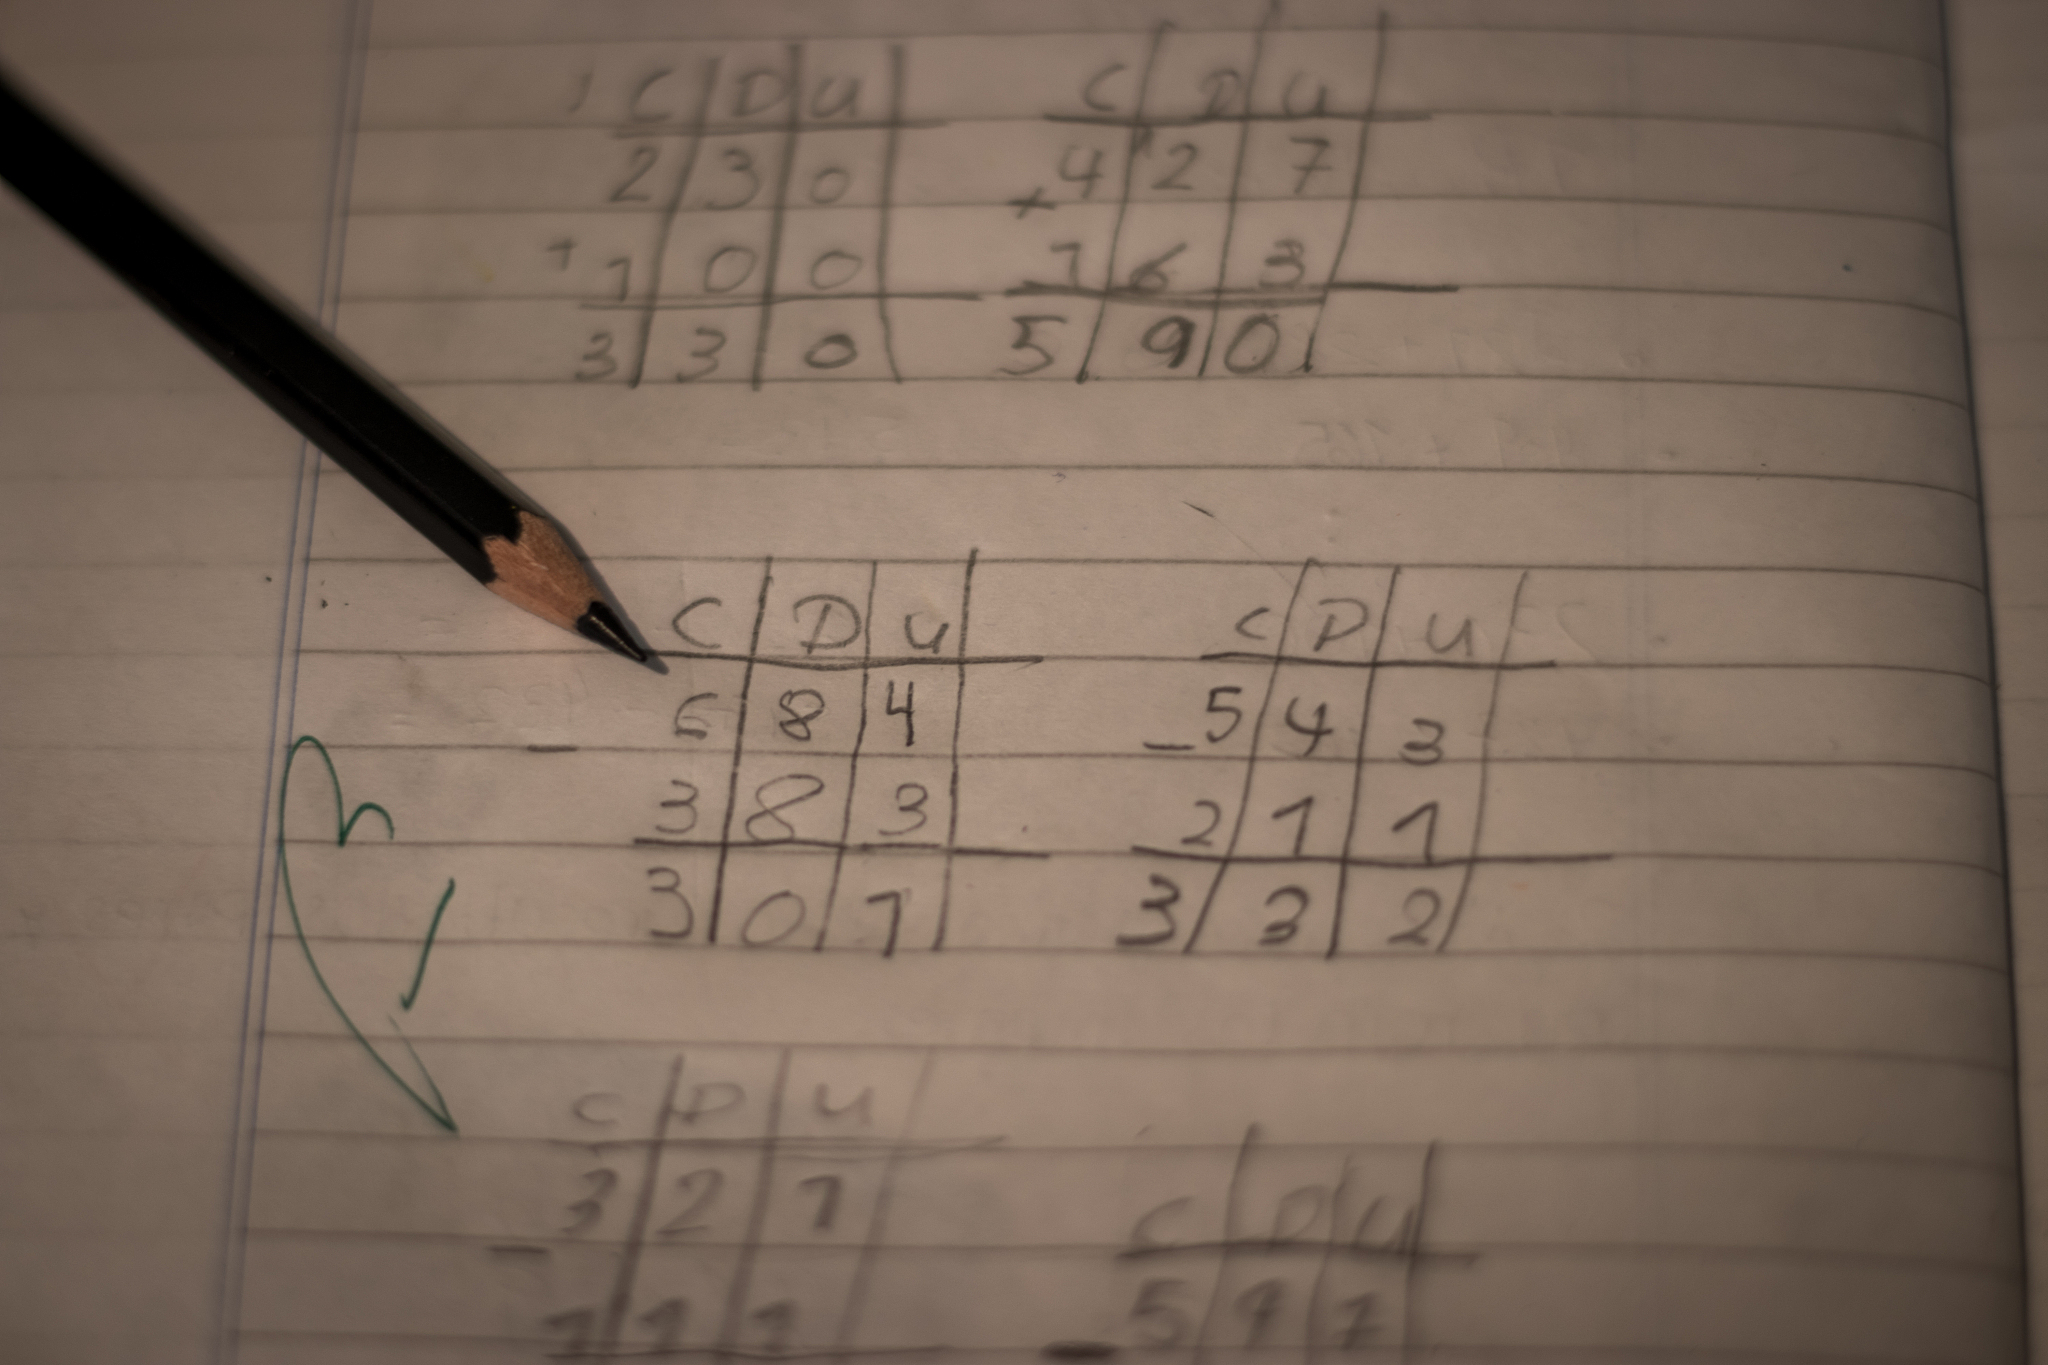 C D U
2 3 0
+ 1 0 0
3 3 0
C D U
+ 4 2 7
1 6 3
5 9 0
C D U
- 5 8 4
3 8 3
3 0 1
C D U
- 5 4 3
2 1 1
3 3 2
C D U
- 3 2 1
1 1 1
C D U
- 5 1 1